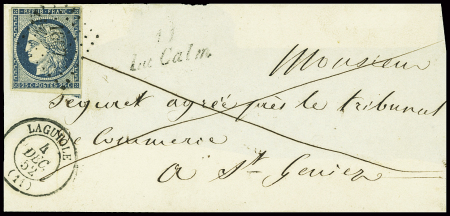 REPUB. FRANC.
25 C POSTES 25 C
11
La Calm
Monsieur
Séguret agréé près le tribunal
de Commerce
à St Geniez
LAGUIOLE
4
DEC.
52
(11)